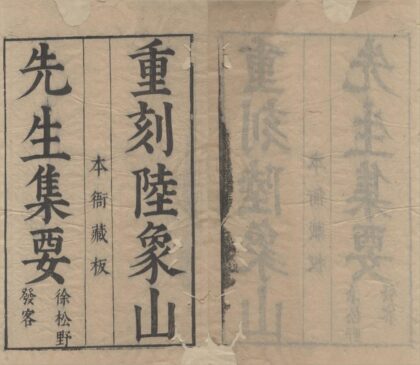 重刻陸象山
本衙藏板
先生集要
徐松野
發客